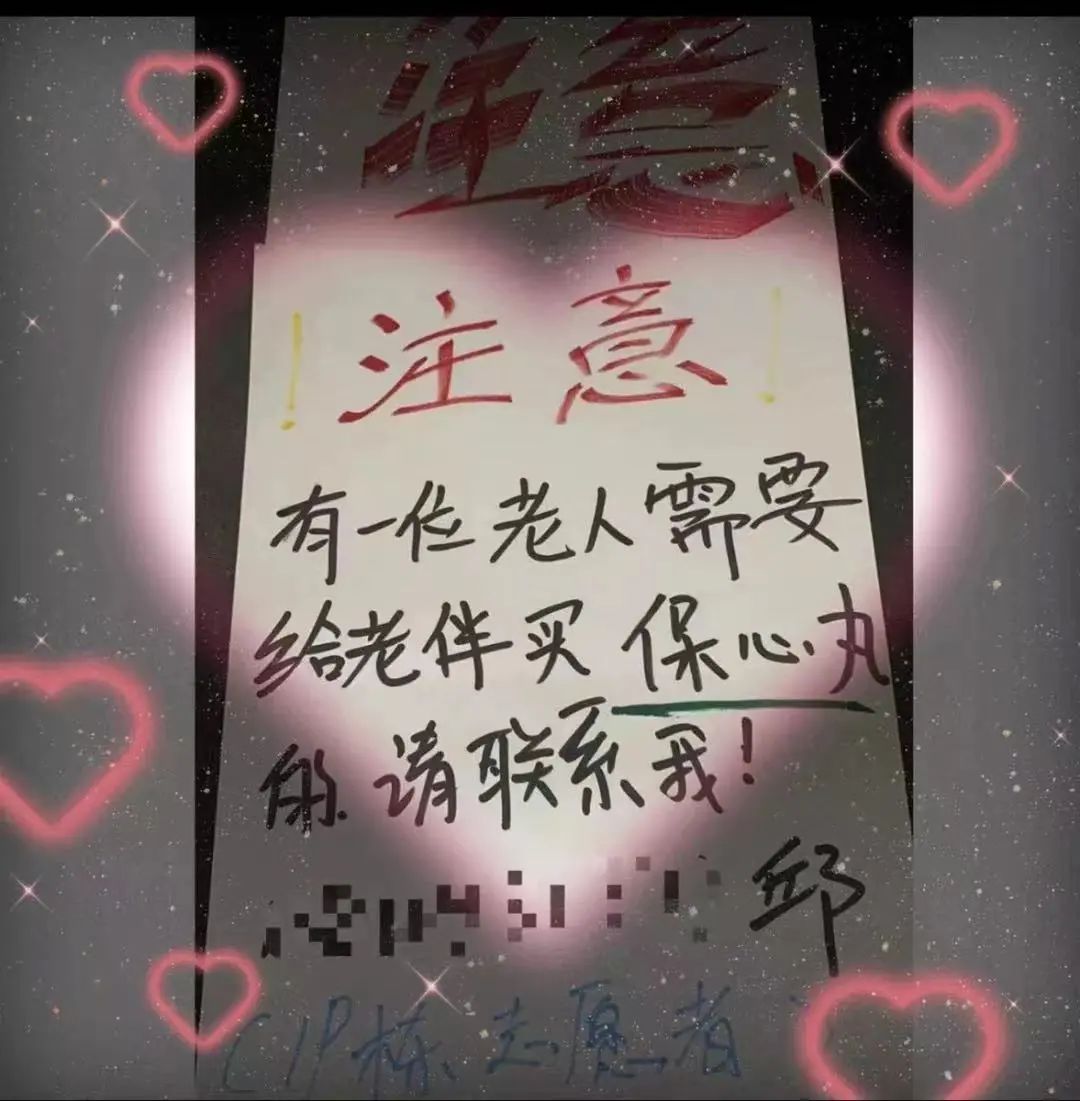 注意
!注意!
有一位老人需要
给老伴买保心丸
的.请联系我!
邱
栋、志愿者